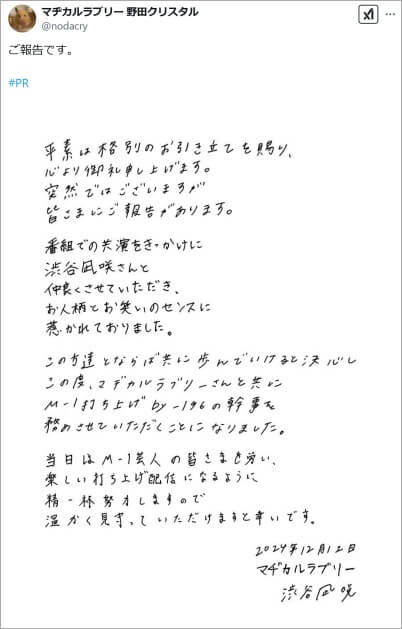 マヂカルラブリー 野田クリスタル
@nodacry
ご報告です。
#PR
平素は格別のお引き立てを賜り、
心より御礼申し上げます。
突然ではございますが
皆さまにご報告があります。
番組での共演をきっかけに
渋谷凪咲さんと
仲良くさせていただき、
お人柄とお笑いのセンスに
惹かれておりました。
この方達とならば共に歩んでいけると決心し
この度、マヂカルラブリーさんと共に
M-1打ち上げ by -196の幹事を
務めさせていただくことになりました。
当日はM-1芸人の皆さまを労い、
楽しい打ち上げ配信になるように
精一杯努力しますので
温かく見守っていただけますと幸いです。
2024年12月12日
マヂカルラブリー
渋谷凪咲